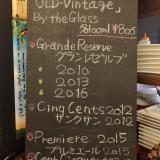 OLD-Vintage」
By the Glass
各100ml ¥800
Grande Reserve
グランレゼルブ
・2010
・2013
・2016
Cinq Cents 2012
サンクサン 2012
Premiere 2015
プルミエール 2015